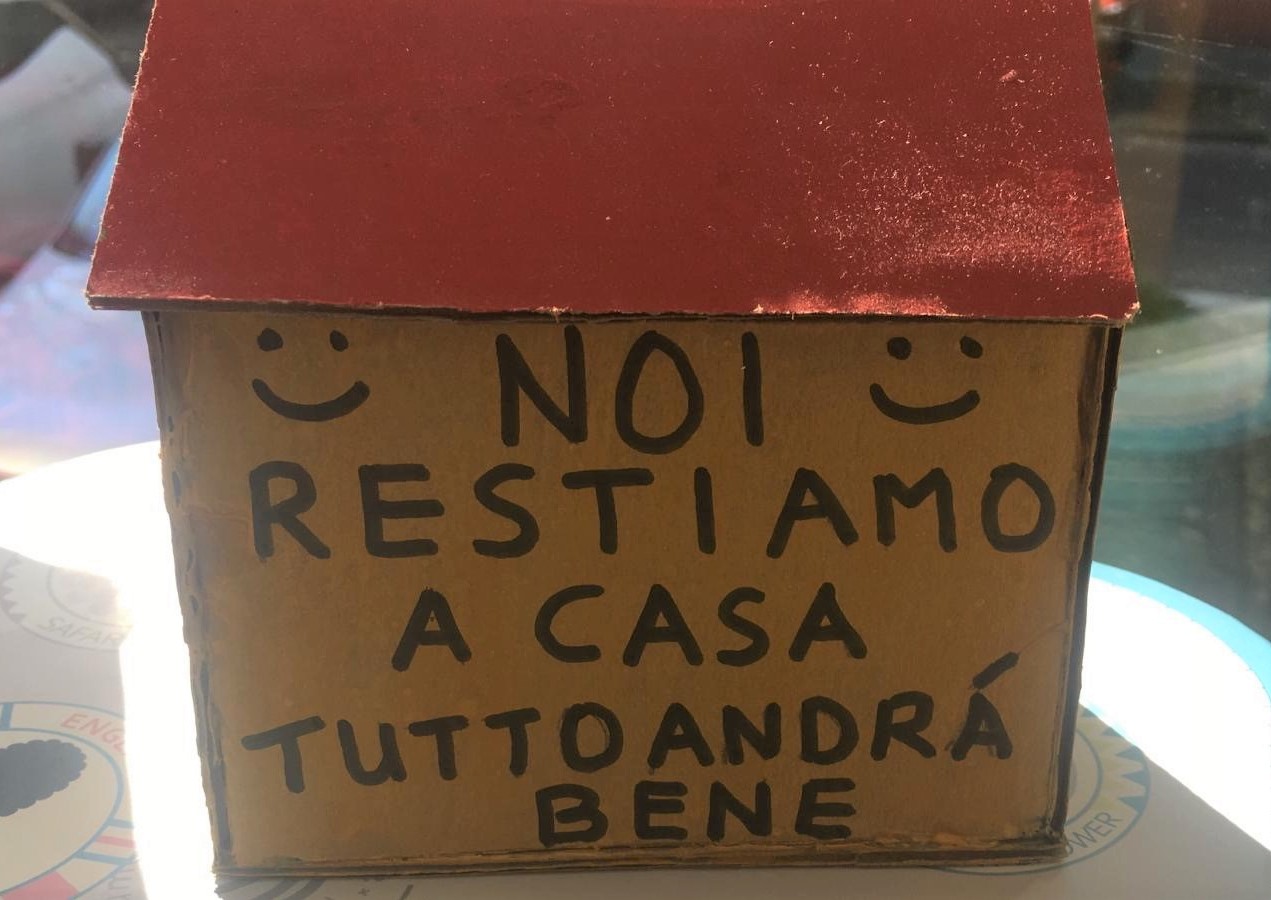 NOI
RESTIAMO
A CASA
TUTTO ANDRÁ
BENE
SAFARI
ENGL